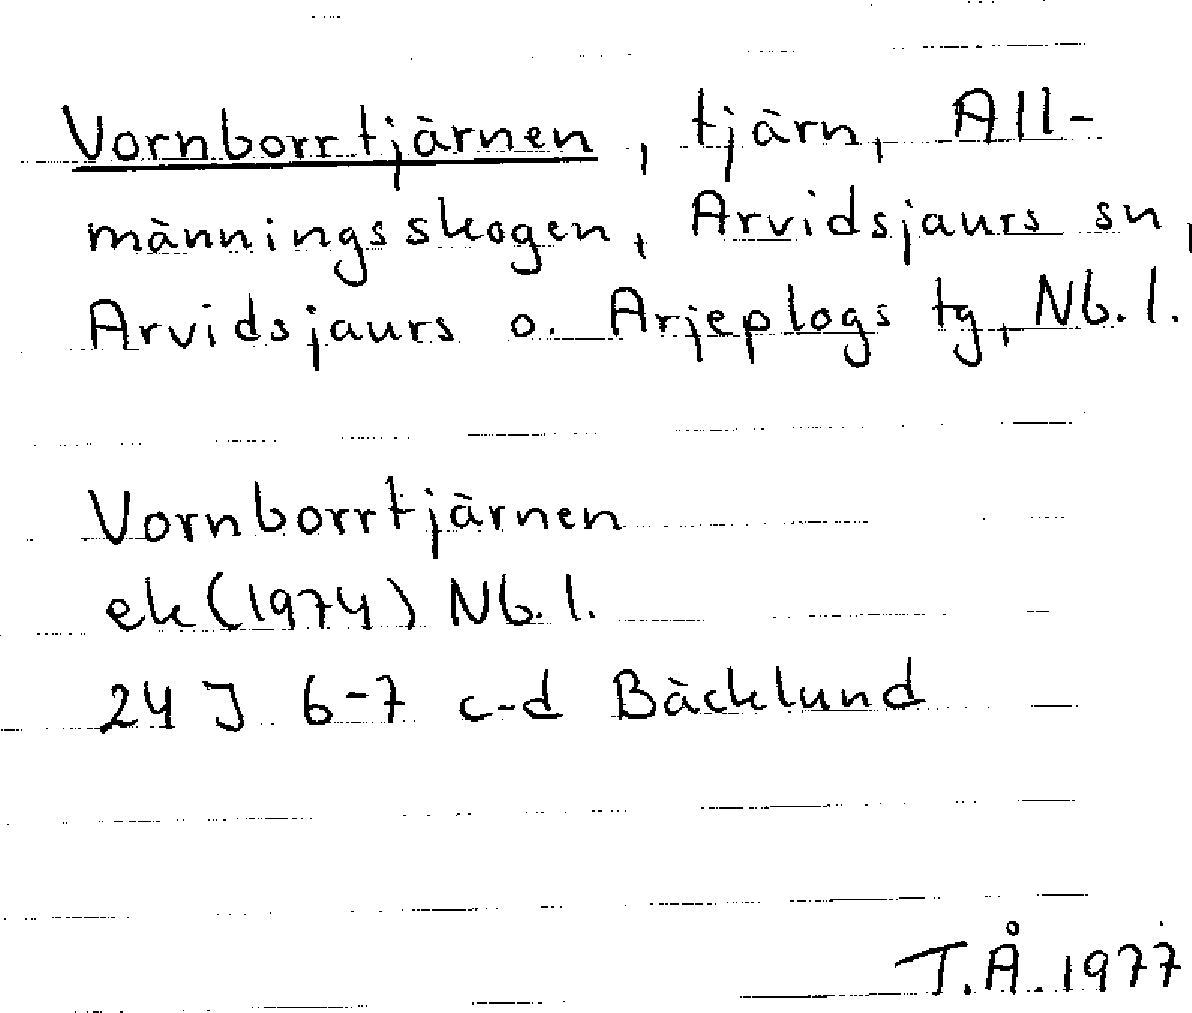 Vornborrtjärnen, tjärn, All-
männingsskogen, Arvidsjaurs sn,
Arvidsjaurs o. Arjeplogs tg, Nb. l.
Vornborrtjärnen
ek (1974) Nb. l.
24 J 6-7 c-d Bäcklund
T.Å. 1977